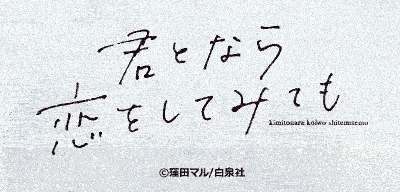 君となら
恋をしてみても
kimitonara koiwo shitemitemo
©窪田マル/白泉社